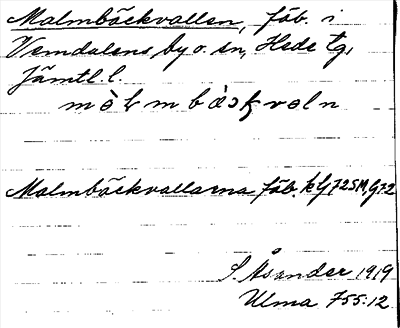 Malmbäckvallen, fäb. i
Vemdalens by o. sn, Hede tg,
Jämtl. l.
màlmbàckvaln
Malmbäckvallarna, fäb.
S. Åsander 1919
Ulma 755:12